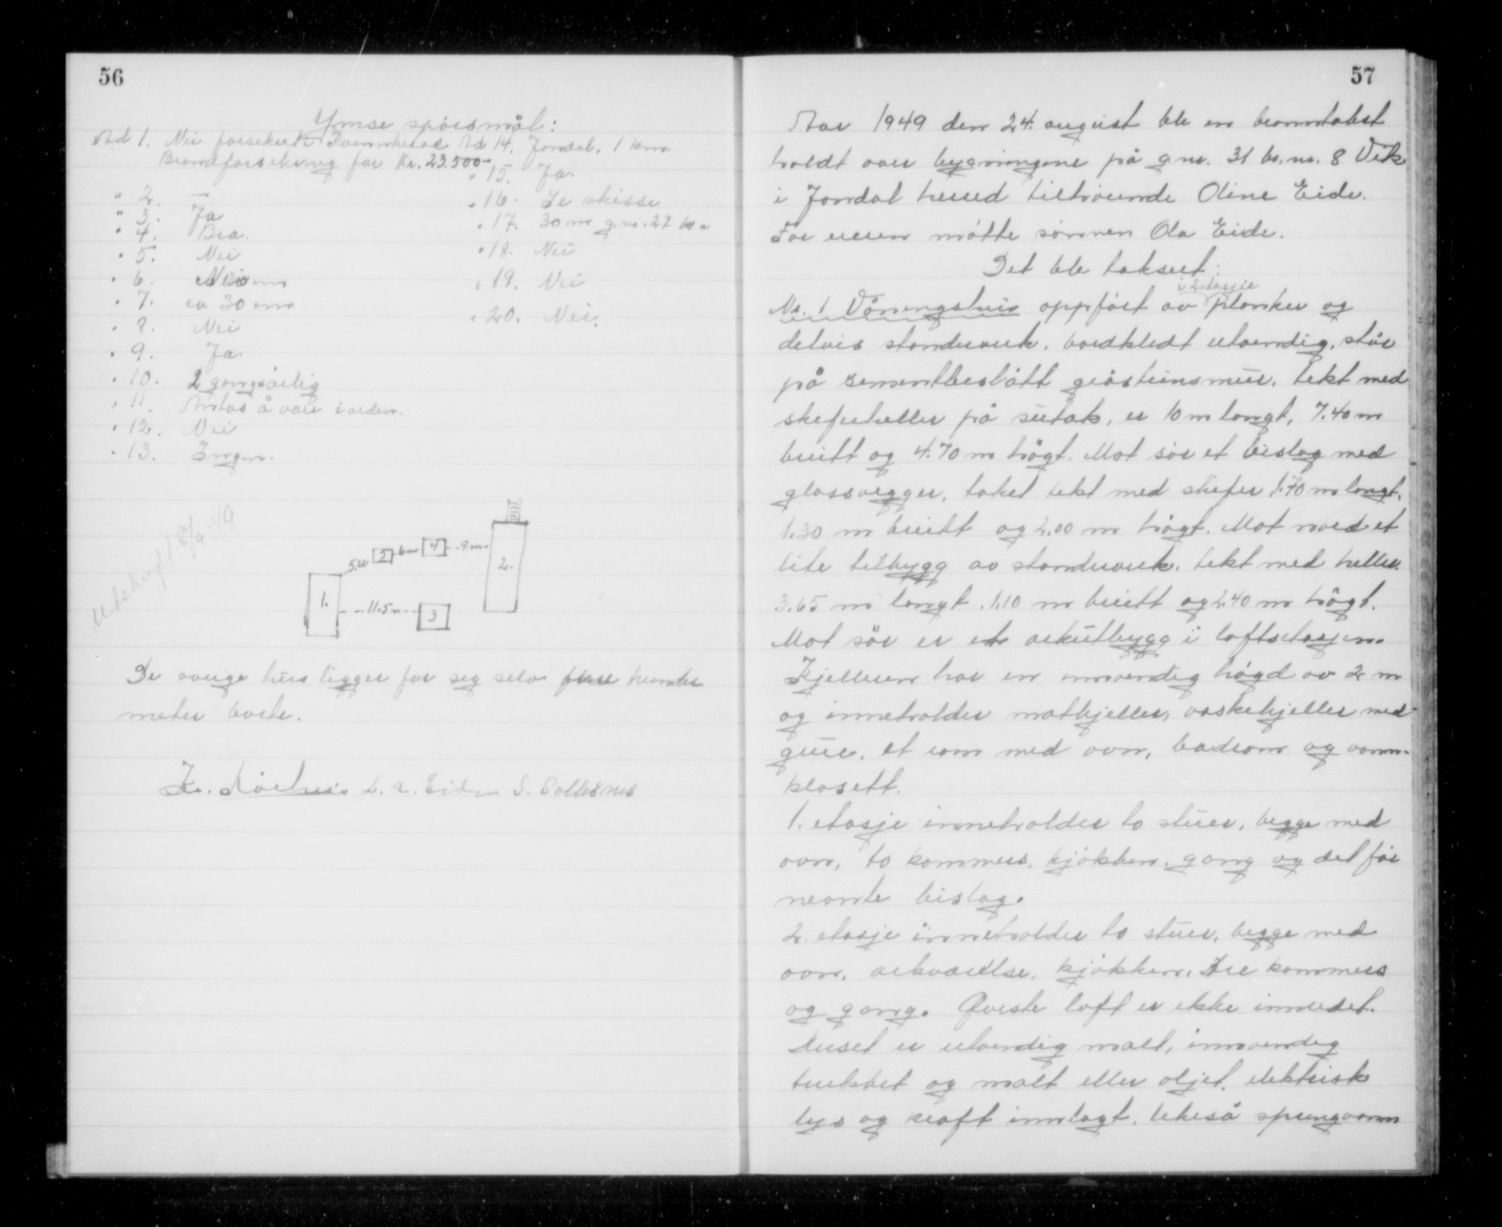 56
Ymse spørsmål:
Ad 1. Nei forsikret i Kvinnherad
Brandforsikring for Kr. 23.500-
" 2. —
" 3. Ja
" 4. Bra.
" 5. Nei
" 6.
" 7. ca 30 cm
" 8. Nei
" 9. Ja
" 10. 2 gong årlig
" 11. Antas å være i orden.
" 12. Nei
" 13. Ingen.
Ad 14. Jondal, 1 km.
" 15. Ja
" 16. Se skisse
" 17. 30 m g.nr. 27
" 18. Nei
" 19. Nei
" 20. Nei.
Utskrift
49
1.
5.
2
6 m
4
9 m
2.
11.5 m
3
De øvrige hus ligger for seg selv hundre
meter borte.
S. Solbsnes
57
Aar 1949 den 24. august ble en branntakst
holdt over bygningene på g.nr. 31 br.nr. 8 Vik
i Jondal herred tilhørende Oline Eide.
For eieren møtte sønnen Ola Eide.
Det ble taksert:
i 2 etasjer
No. 1 Våningshus oppført av planker og
delvis standverk, bordkledt utvendig, står
på sementbeslått gråsteinsmur. tekt med
skiferheller på sutak, er 10 m langt, 7.40 m
breitt og 4.70 m høgt. Mot sør et bislag med
glassvegger, taket tekt med skifer 1.70 m langt,
1.30 m breitt og 2.00 m høgt. Mot nord et
lite tilbygg av standverk. tekt med heller
3.65 m langt. 1.10 m breitt og 2.40 m høgt.
Mot sør er et arkutbygg i loftsetasjen.
Kjelleren har en innvendig høgd av 2 m
og inneholder matkjeller, vaskekjeller med
grue, et rom med ovn, badrom og vann-
klosett.
1. etasje inneholder to stuer, begge med
ovn, to kammers, kjøkken, gang og det før
nevnte bislag.
2. etasje inneholder to stuer, begge med
ovn, arkværelse, kjøkken, tre kammers
og gang. Øverste loft er ikke innredet.
Huset er utvendig malt, innvendig
trekket og malt eller oljet. elektrisk
lys og kraft innlagt, likeså springvann